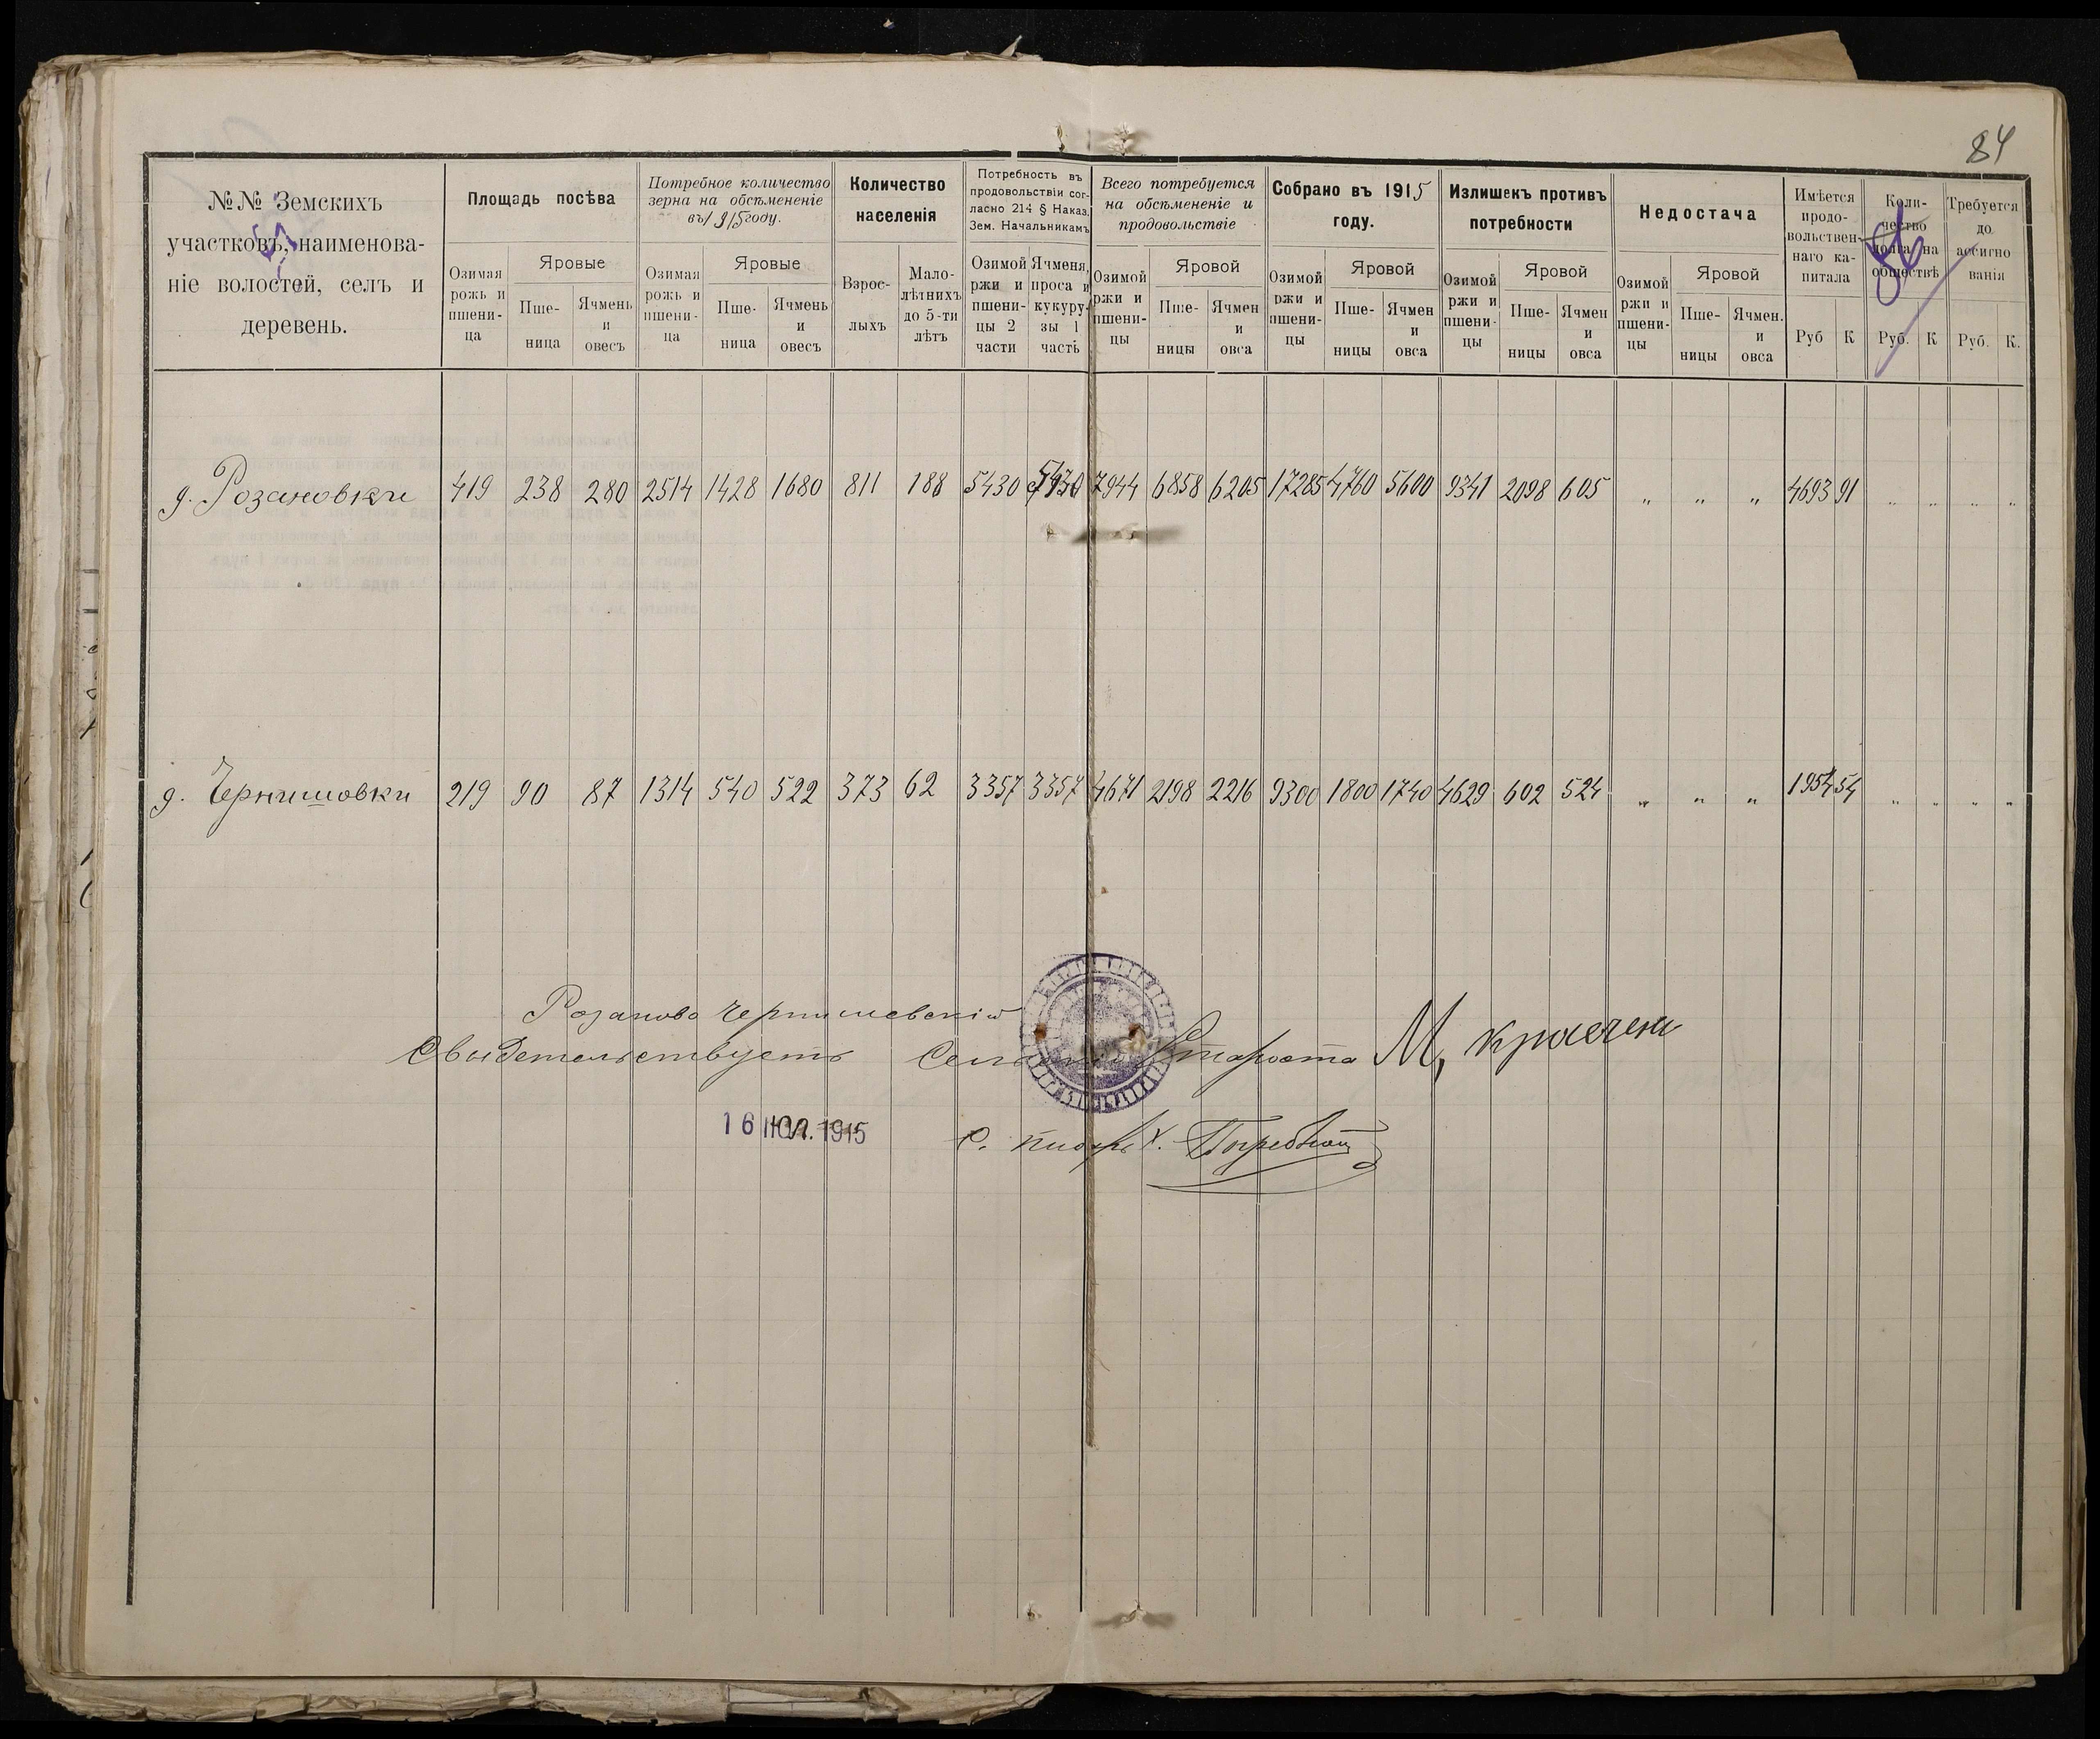 84
№№ Земскихъ
участковъ, наименова-
ніе волостей, селъ и
деревень.
Площадь посѣва
Озимая
рожь и
пшени-
ца
Яровые
Пше-
ница
Ячмень
и
овесъ
Потребное количество
зерна на обсѣмененіе
въ 1915 году.
Озимая
рожь и
пшени-
ца
Яровые
Пше-
ница
Ячмень
и
овесъ
Количество
населенія
Взрос-
лыхъ
Мало-
лѣтнихъ
до 5-ти
лѣтъ
Потребность въ
продовольствіи сог-
ласно 214 § Наказ.
Зем. Начальникамъ
Озимой
ржи и
пшени-
цы 2
части
Ячменя,
проса и
кукуру-
зы 1
часть
Всего потребуется
на обсѣмененіе и
продовольствіе
Озимой
ржи и
пшени-
цы
Яровой
Пше-
ницы
Ячмен
и
овса
Собрано въ 1915
году.
Озимой
ржи и
пшени-
цы
Яровой
Пше-
ницы
Ячмен
и
овса
Излишекъ противъ
потребности
Озимой
ржи и
пшени-
цы
Яровой
Пше-
ницы
Ячмен
и
овса
Недостача
Озимой
ржи и
пшени-
цы
Яровой
Пше-
ницы
Ячмен.
и
овса
Имѣется
продо-
вольствен-
наго ка-
питала
Руб К
Коли-
чество
долга на
обществѣ
Руб. К
Требуется
до
ассигно
ванія
Руб. К.
д. Розановки 419 238 280 2514 1428 1680 811 188 5430 5430 7944 6858 6205 17285 4760 5600 9341 2098 605 „ „ „ 4693 91 „ „ „ „
д. Чернишовки 219 90 87 1314 540 522 373 62 3357 3357 4671 2198 2216 9300 1800 1740 4629 602 524 „ „ „ 1954 54 „ „ „ „
Розаново Чернишевскій
Свидетельствуетъ Сельскій Староста М,
16 ІЮЛ. 1915
С. писарь